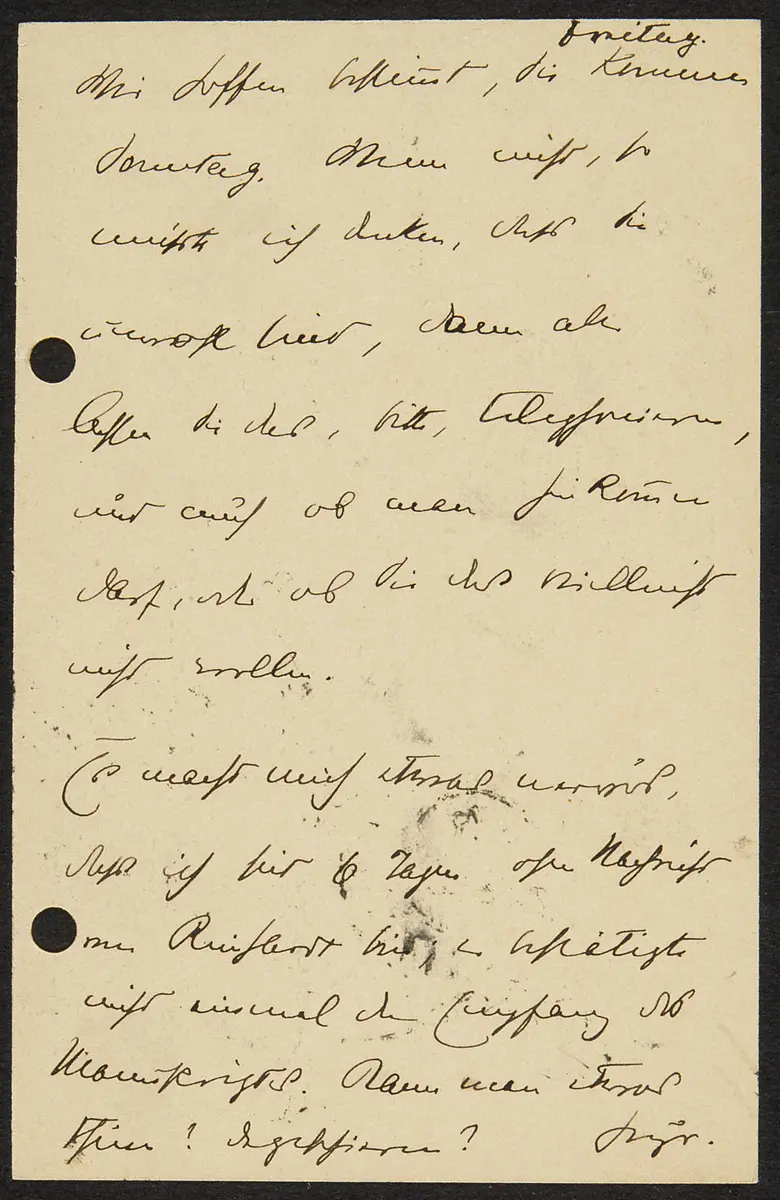 Freitag.
Wir hoffen bestimmt, Sie kommen
Sonntag. Wenn nicht, so
müßte ich denken, daß Sie
unwohl sind, dann aber
lassen Sie das, bitte, telephonieren,
und auch ob man hinkommen
darf, oder ob Sie das vielleicht
nicht wollen.
Es macht mich etwas nervös,
daß ich seit 6 Tagen ohne Nachricht
von Reinhardt bin, er bestätigte
nicht einmal den Empfang des
Manuskriptes. Kann man etwas
thun? depeschieren?